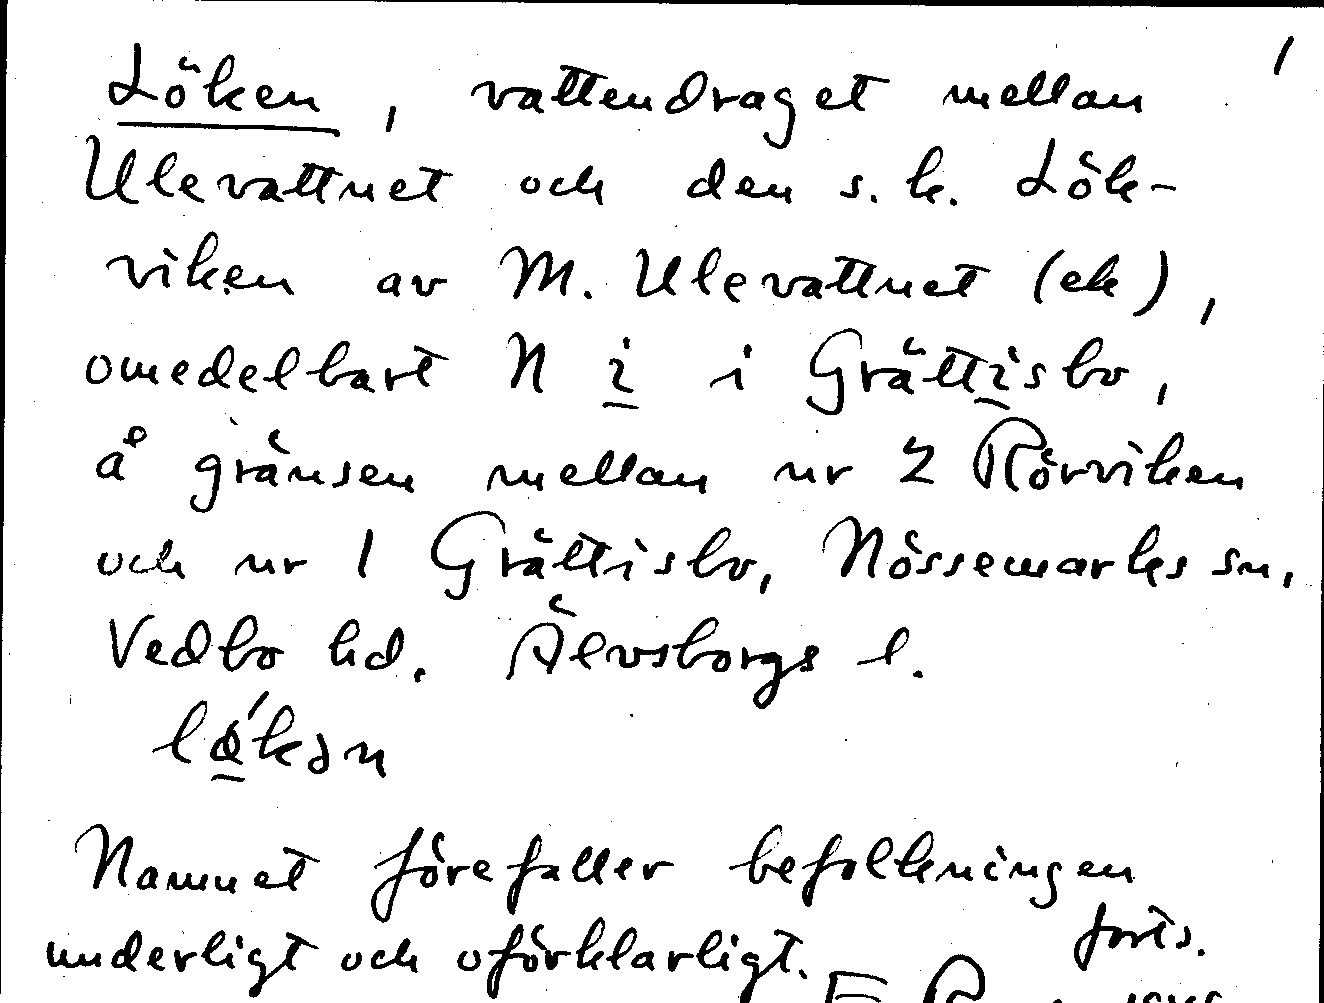 1
Löken, vattendraget mellan
Ulevattnet och den s.k. Lök-
viken av M. Ulevattnet (ek),
omedelbart N i i Grättisbo,
å gränsen mellan nr 2 Rörviken
och nr 1 Grättisbo, Nössemarks sn,
Vedbo hd. Älvsborgs l.
lǿ̱kən
Namnet förefaller befolkningen
forts.
underligt och oförklarligt.